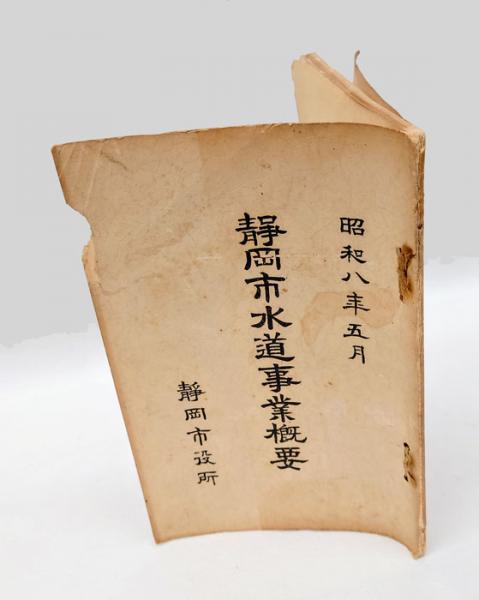 昭和八年五月
靜岡市水道事業概要
靜岡市役所